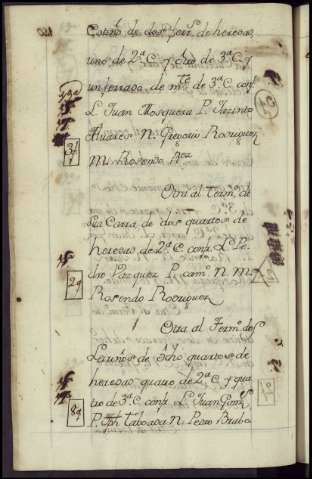 de dos ferr.s de heredad
uno de 2.ª C. y otro de 3.ª C. y
un ferrado de m.te de 3.ª C. conf.
L. Juan Mosquera P. Jazinto
Alvares N. Gregorio Rodriguez
M. Rosendo Rez
3f
Otra al Term.o de
la Carra de dos quartos de
heredad de 2.ª C. confr. L. Pe
dro Vazquez P. cam.o N. M.
Rosendo Rodriguez
2q
Otra al Term.o de
de ocho quartos de
heredad quatro de 2.ª C. y qua
tro de 3.ª C. confr. L. Juan
P. Jph Taboada N. Pedro
8q